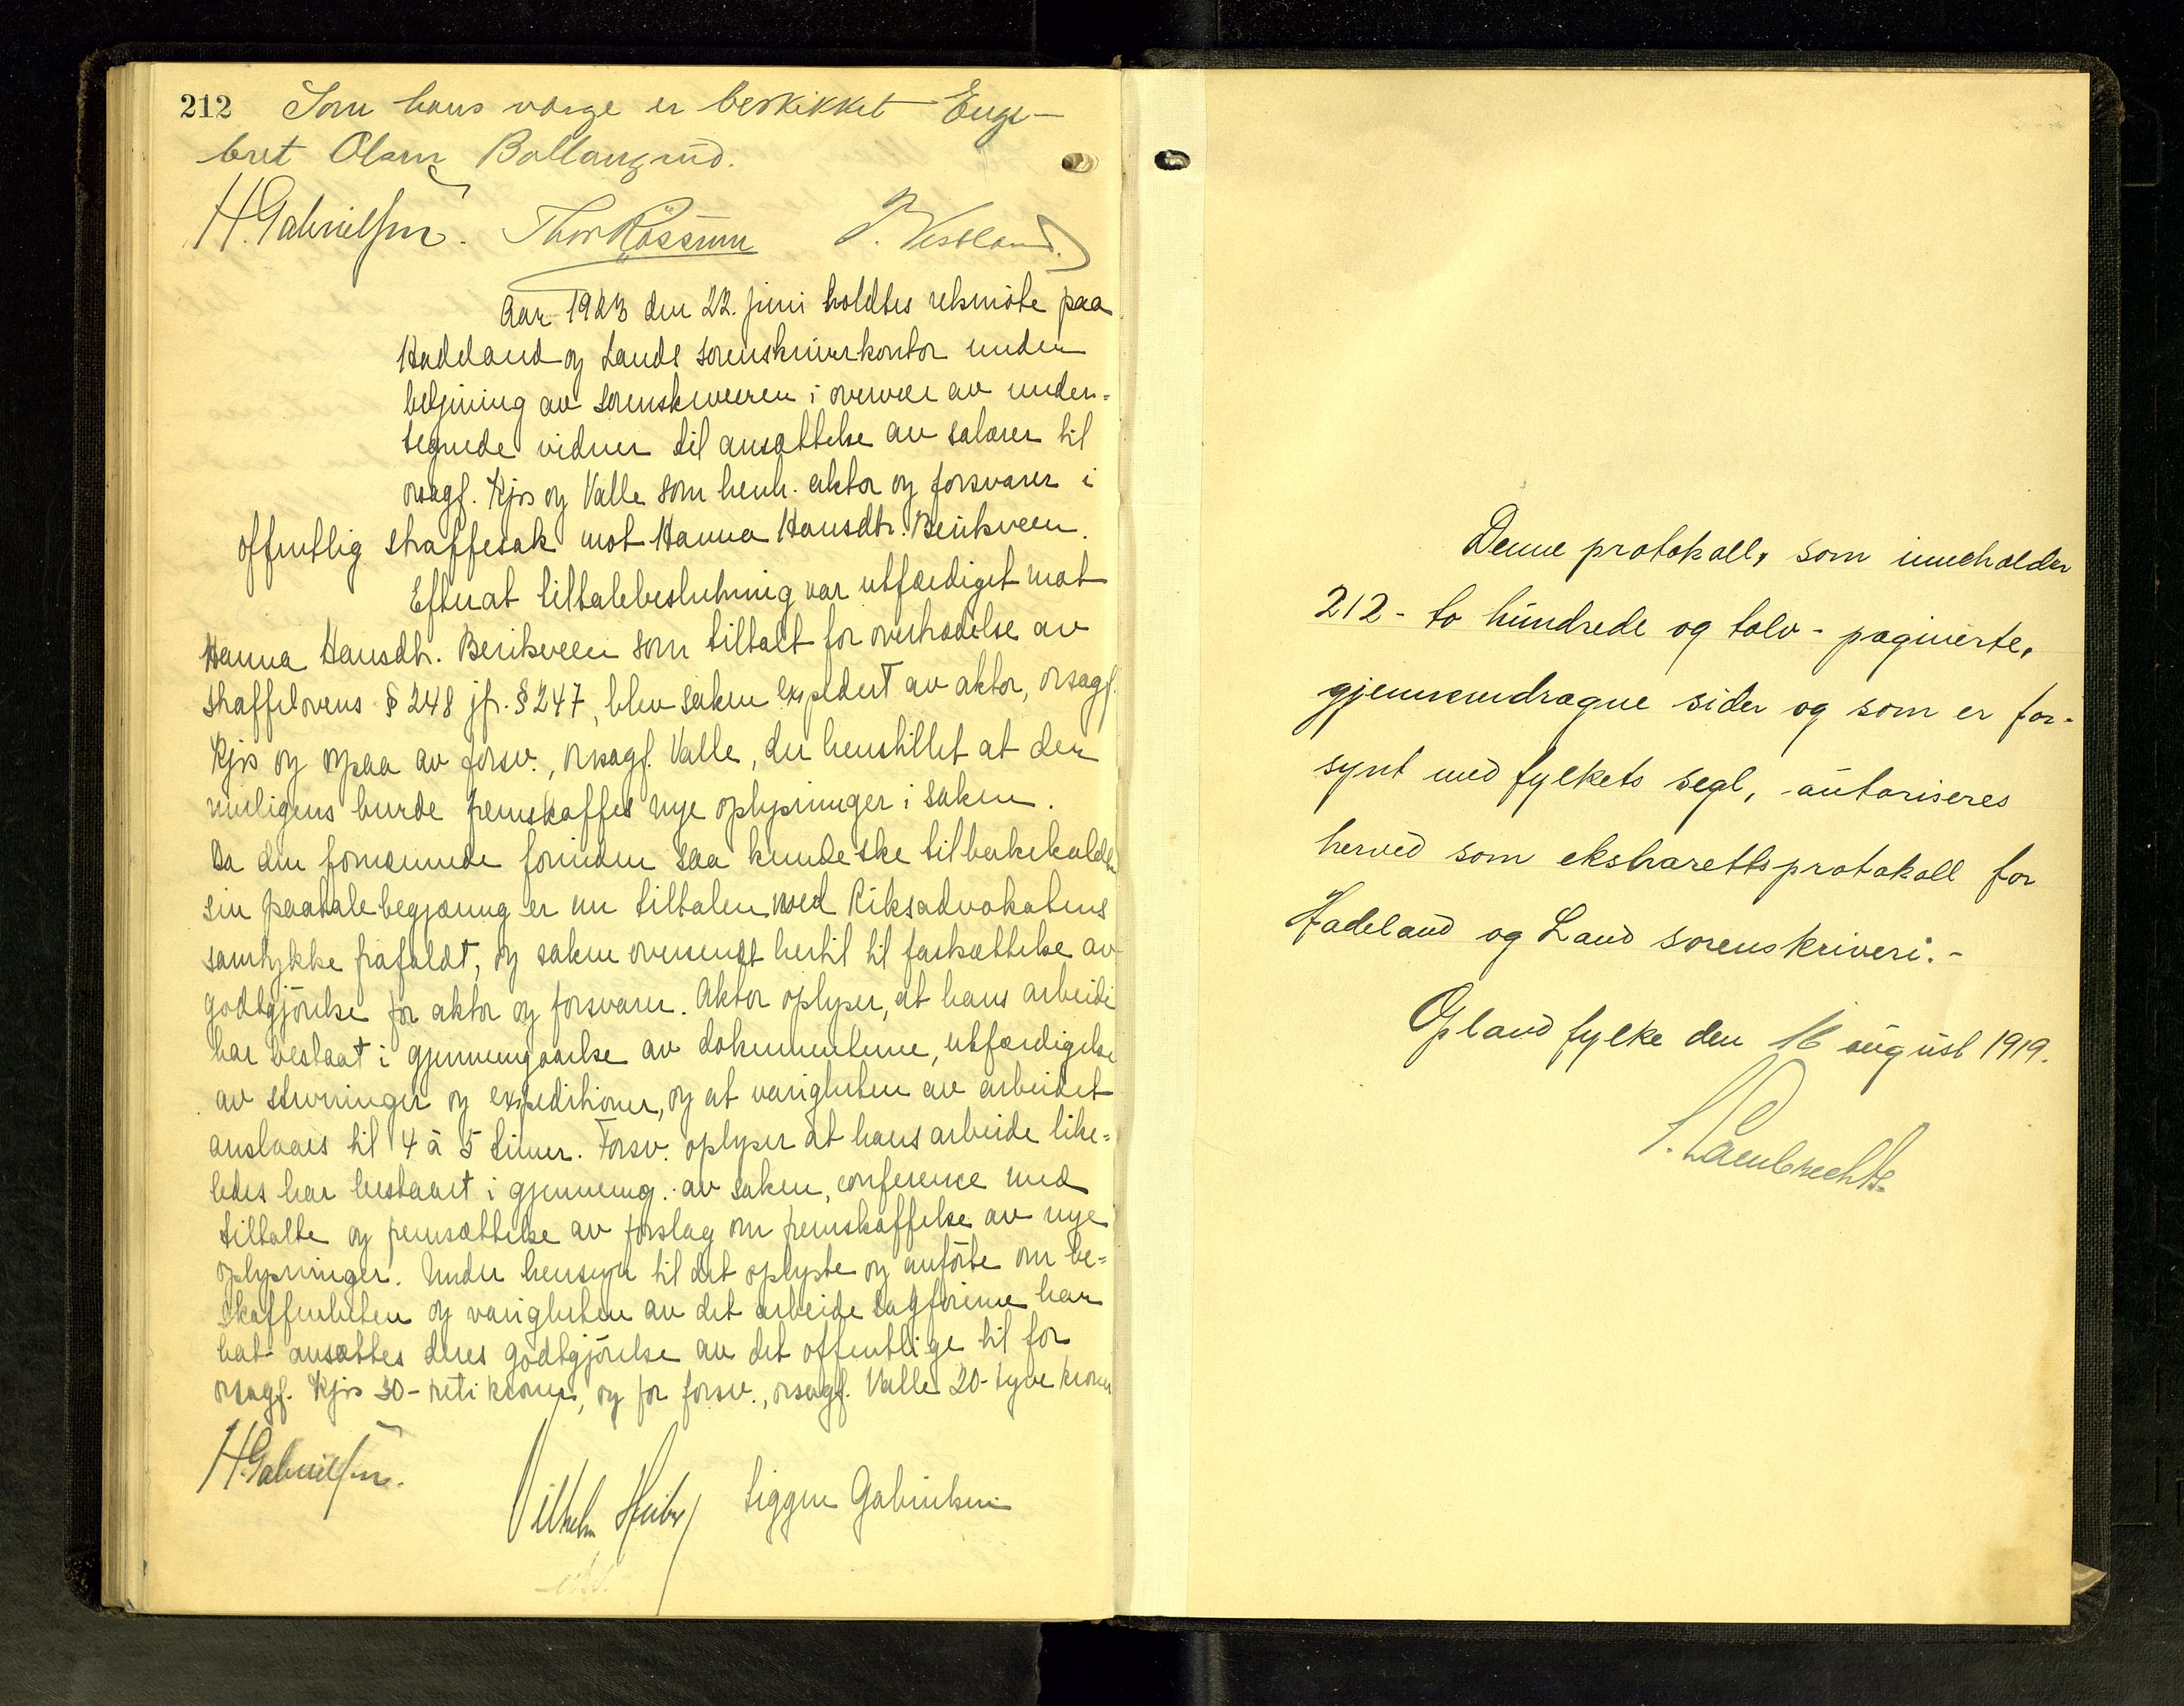 212 Som hans værge er beskikket Enge-
bret Olsen Ballangrud.
H. Gabrielsen. Thor Røssum P. Vestland.
Aar 1923 den 22. juni holdtes retsmöte paa
Hadeland og Lands sorenskriverkontor under
betjening av sorenskriveren i overvær av under-
tegnede vidner til ansættelse av salærer til
orsagf. Kjos og Valle som henh. aktor og forsvarer i
offentlig straffesak mot Hanna Hansdtr. Bérikveen.
Efterat tiltalebeslutning var utfærdiget mot
Hanna Hansdtr. Berikveen som tiltalt for overtrædelse av
straffelovens § 248 jfr. § 247, blev saken expedert av aktor, orsagf.
Kjos og ogsaa av forsv., orsagf. Valle, der henstillet at der
muligens burde fremskaffes nye oplysninger i saken.
Da den fornærmede forinden saa kunde ske tilbakekaldte
sin paatalebegjæring er nu tiltalen med Riksadvokatens
samtykke frafaldt, og saken oversendt hertil til fastsættelse av
godtgjörelse for aktor og forsvarer. Aktor oplyser, at hans arbeide
har bestaat i gjennemgaaelse av dokumenterne, utfærdigelse
av stevninger og expeditioner, og at varigheten av arbeidet
anslaaes til 4 à 5 timer. Forsv. oplyser at hans arbeide like-
ledes har bestaaet i gjennemg. av saken, conference med
tiltalte og fremsættelse av forslag om fremskaffelse av nye
oplysninger. Under hensyn til det oplyste og anförte om be-
skaffenheten og varigheten av det arbeide sagförerne har
hat ansættes deres godtgjörelse av det offentlige til for
orsagf. Kjos 30 - treti kroner, og for forsv., orsagf. Valle 20 - tyve kroner
H. Gabrielsen.
Vilhelm Heiberg Siggen Gabrielsen
Denne protokoll, som inneholder
212 - to hundrede og tolv - paginerte,
gjennemdragne sider og som er for-
synt med fylkets segl, autoriseres
herved som ekstrarettsprotokoll for
Hadeland og Land sorenskriveri. -
Opland fylke den 16 august 1919.
Lambrechts